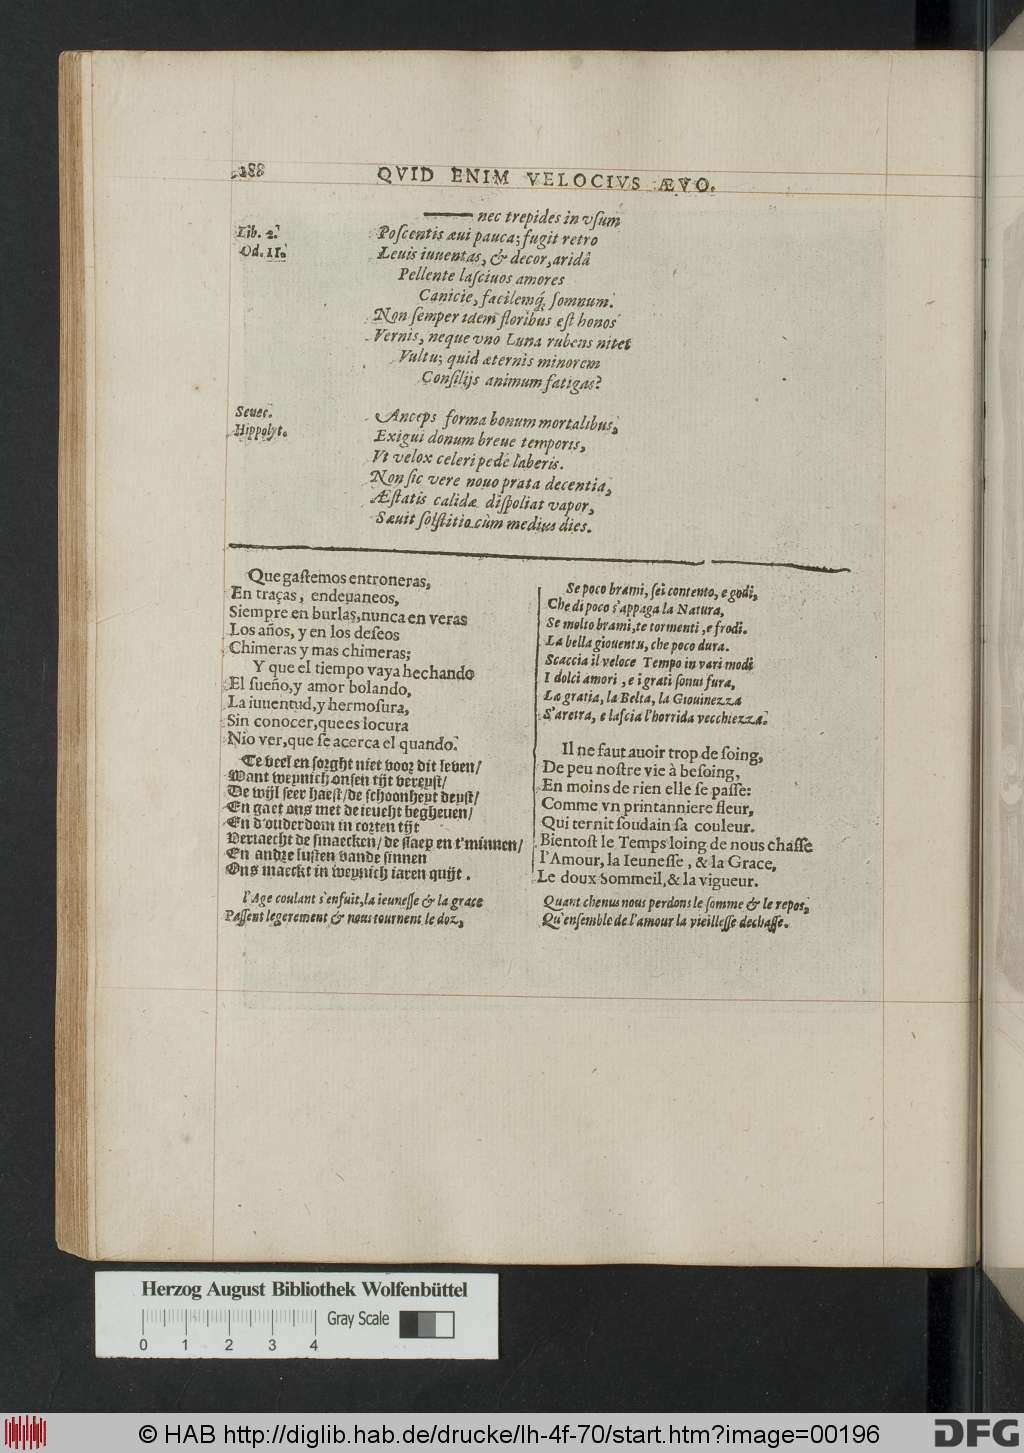 188
QVID ENIM VELOCIVS ÆVO.
nec trepides in vſum
Lib. 2.
Poſcentis æui pauca; fugit retro
Od. 11.
Leuis iuuentas, & decor, aridâ
Pellente laſciuos amores
Canicie, facilemq́; ſomnum.
Non ſemper idem floribus eſt honos
Vernis, neque vno Luna rubens nitet
Vultu; quid æternis minorem
Conſilijs animum fatigas?
Senec.
Anceps forma bonum mortalibus,
Hippolyt.
Exigui donum breue temporis,
Vt velox celeri pede laberis.
Non ſic vere nouo prata decentia,
Æſtatis calidæ diſpoliat vapor,
Sæuit ſolſtitio cùm medius dies.
Que gaſtemos entroneras,
En traças, endeuaneos,
Siempre en burlas, nunca en veras
Los años, y en los deſeos
Chimeras y mas chimeras;
Y que el tiempo vaya hechando
El ſueño, y amor bolando,
La iuuentud, y hermoſura,
Sin conocer, que es locura
Nio ver, que ſe acerca el quando.
Te veel en ſorght niet voor dit leven/
Want weynich onſen tijt vereyſt/
De wijl ſeer haeſt/de ſchoonheyt deyſt/
En gaet ons met de ieucht begheven/
En d'ouderdom in corten tijt
Veriaecht de ſmaecken/ de ſlaep en t'minnen/
En andre luſten vande ſinnen
Ons maeckt in weynich iaren quijt.
l'Age coulant s'enfuit, la ieuneſſe & la grace
Paſſent legerement & nous tournent le doz,
Se poco brami, ſei contento, e godi,
Che di poco s'appaga la Natura,
Se molto brami, te tormenti, e frodi.
La bella giouentu, che poco dura.
Scaccia il veloce Tempo in vari modi
I dolci amori, e i grati ſonni fura,
La gratia, la Belta, la Giouinezza
S'aretra, e laſcia l'horrida vecchiezza.
Il ne faut auoir trop de ſoing,
De peu noſtre vie à beſoing,
En moins de rien elle ſe paſſe:
Comme vn printanniere fleur,
Qui ternit ſoudain ſa couleur.
Bientoſt le Temps loing de nous chaſſe
l'Amour, la Ieuneſſe, & la Grace,
Le doux Sommeil, & la vigueur.
Quant chenus nous perdons le ſomme & le repos,
Qu'enſemble de l'amour la vieilleſſe dechaſſe.
Herzog August Bibliothek Wolfenbüttel
Gray Scale
0 1 2 3 4
© HAB http://diglib.hab.de/drucke/lh-4f-70/start.htm?image=00196
DFG